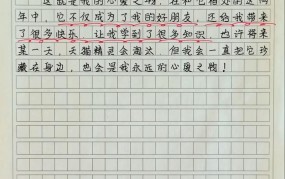 这就是我的心爱之物，在和它相处的这两
年中，它不仅成为了我的好朋友，还给我带来
了很多快乐，让我学到了很多知识，也许将来
某一天，天猫精灵会淘汰，但我会一直把它珍
藏在身边，也会是我永远的心爱之物！